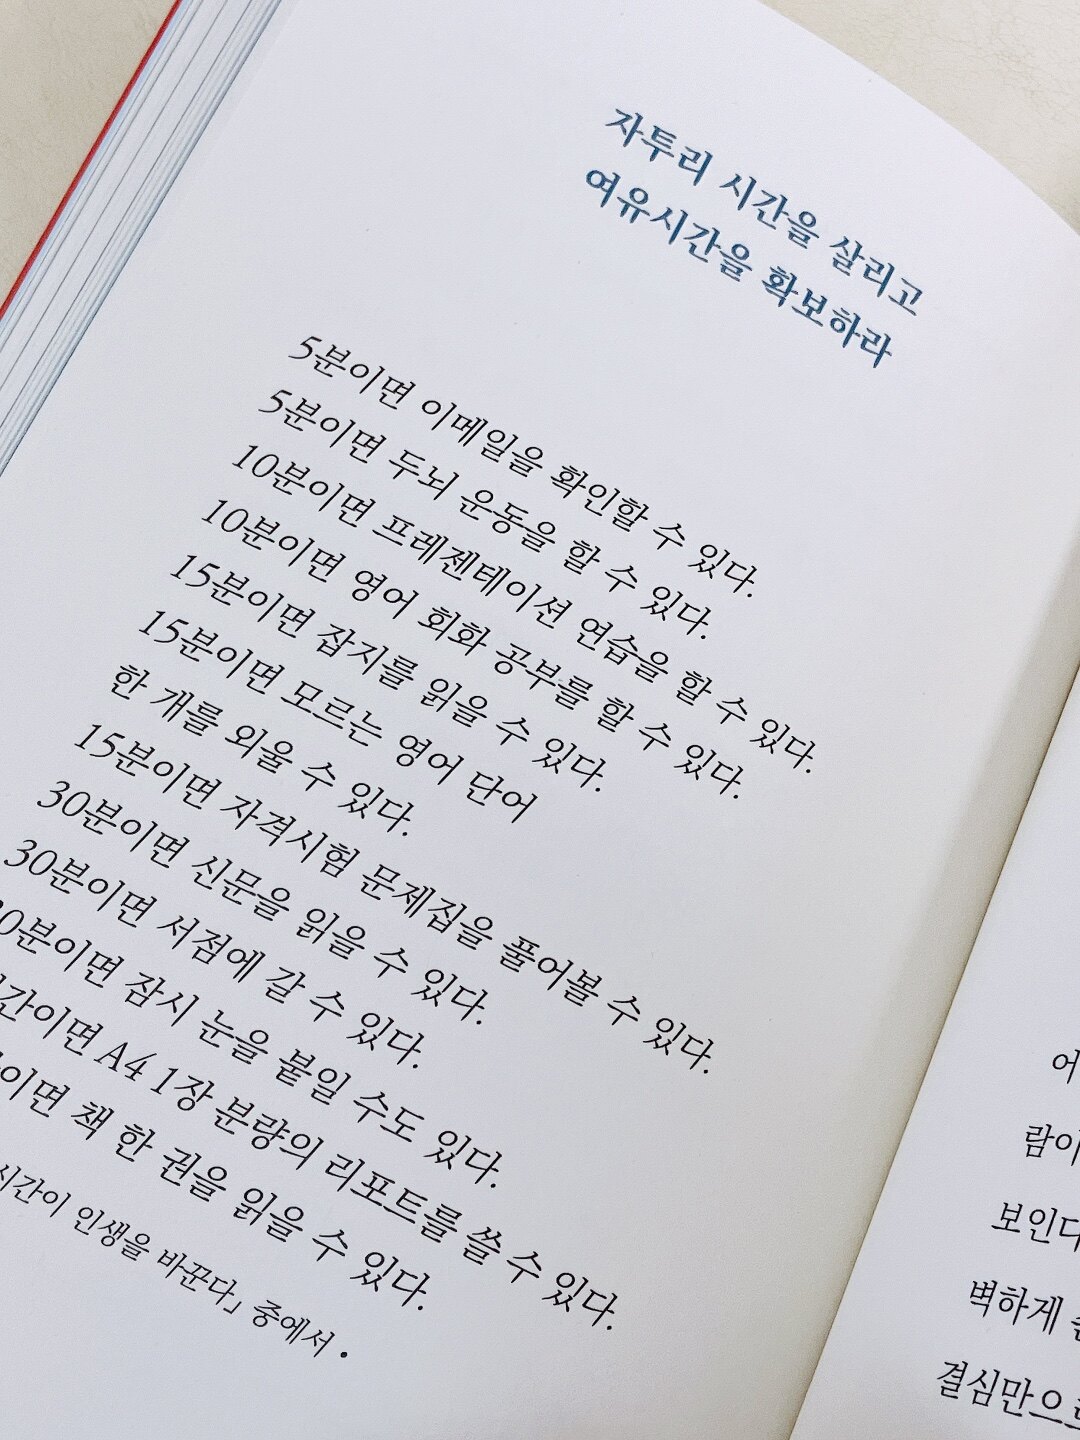 자투리 시간을 살리고
여유시간을 확보하라
5분이면 이메일을 확인할 수 있다.
5분이면 두뇌 운동을 할 수 있다.
10분이면 프레젠테이션 연습을 할 수 있다.
10분이면 영어 회화 공부를 할 수 있다.
15분이면 잡지를 읽을 수 있다.
15분이면 모르는 영어 단어
한 개를 외울 수 있다.
15분이면 자격시험 문제집을 풀어볼 수 있다.
30분이면 신문을 읽을 수 있다.
30분이면 서점에 갈 수 있다.
0분이면 잠시 눈을 붙일 수도 있다.
간이면 A4 1장 분량의 리포트를 쓸 수 있다.
이면 책 한 권을 읽을 수 있다.
시간이 인생을 바꾼다」 중에서 •
어
람이
보인다
벽하게
결심만으로